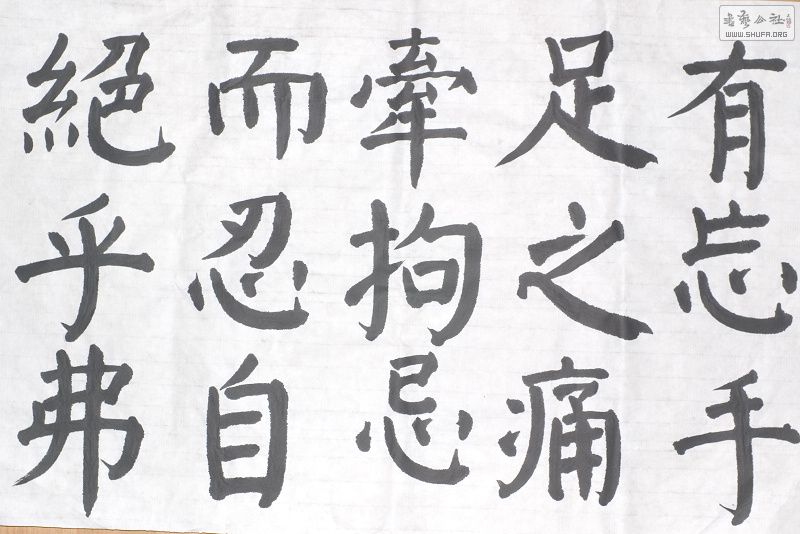 有忘手
足之痛
牽拘忌
而忍自
絕乎弗
書藝公社
WWW.SHUFA.ORG